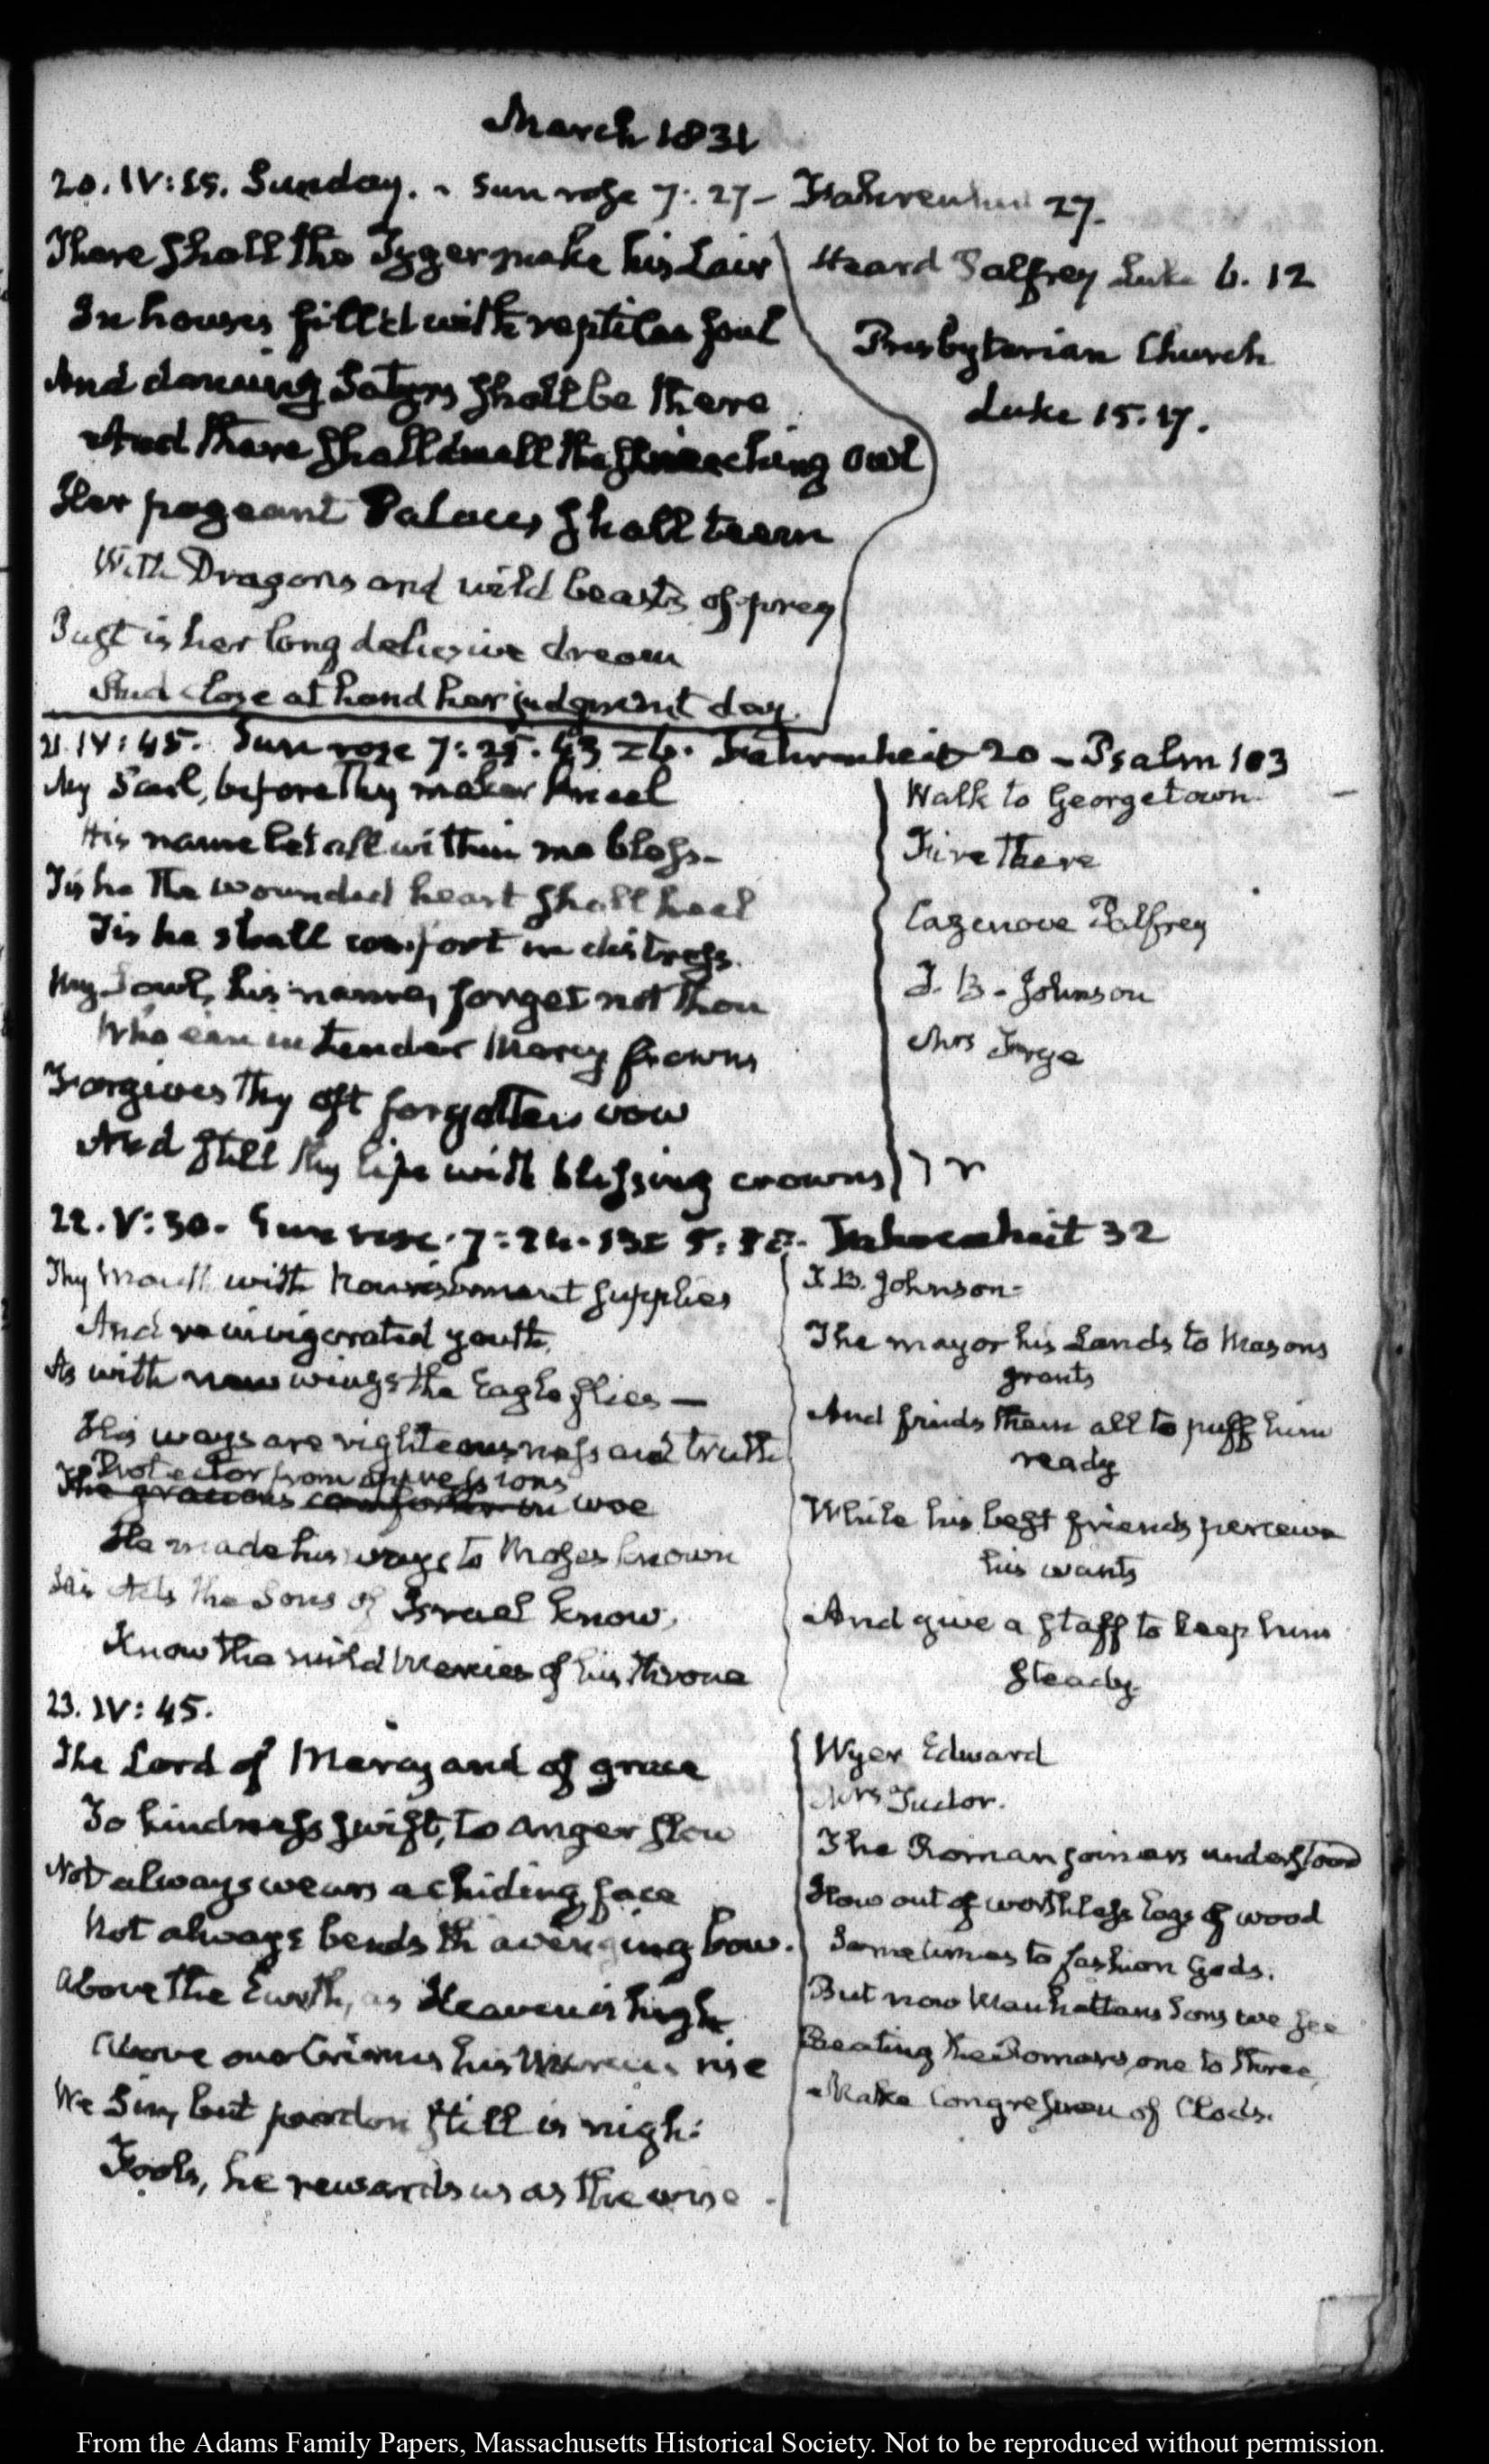 March 1831
20. IV:15. Sunday. - Sun rose 7:27 - Fahrenheit 27.
There shall the Tyger make his Lair
In houses fill'd with reptiles foul
And dancing Satyrs shall be there
And there shall dwell the screeching owl
Her pageant Palaces shall teem
With Dragons and wild beasts of prey
Past is her long delusive dream
And close at hand her judgment day.
Heard Palfrey Luke 6. 12
Presbyterian Church
Luke 15. 17.
21. IV:45. Sun rose 7: 6. Fahrenheit 20 - Psalm 103
My Soul, before thy maker kneel
His name let all within me bless -
Tis he the wounded heart shall heal
Tis he shall comfort in distress.
My Soul, his name, forget not thou
Who e'en in tender Mercy frowns
Forgives thy oft forgotten vow
And still thy life with blessing crowns
Walk to Georgetown.
Fire there
Cazenove Palfrey
J. B. Johnson
Mrs
22. V:30. Sun rose 7: Fahrenheit 32
Thy Mouth with Nourishment supplies
And reinvigorated youth,
As with new wings the Eagle flies —
His ways are righteousness and truth
Protector from oppressions
The gracious comforter in woe
He made his ways to Moses known
His Acts the Sons of Israel know,
Know the mild Mercies of his throne
J. B. Johnson -
The mayor his Lands to Masons
grants
And finds them all to puff him
ready
While his best friends perceive
his wants
And give a staff to keep him
steady.
23. IV:45.
The Lord of Mercy and of grace
To kindness swift, to anger slow
Not always wears a chiding face
Not always bends th'avenging bow.
Above the Earth, as Heaven is high,
Above our Crimes his Mercies rise
We Sin, but pardon still is nigh:
Fools, he rewards us as the wise.
Wyer Edward
Mrs Tudor.
The Roman joiners understood
How out of worthless logs of wood
Sometimes to fashion Gods.
But now Manhattans Sons we see
Beating the Romans, one to three,
Make Congressmen of Clods.
From the Adams Family Papers, Massachusetts Historical Society. Not to be reproduced without permission.